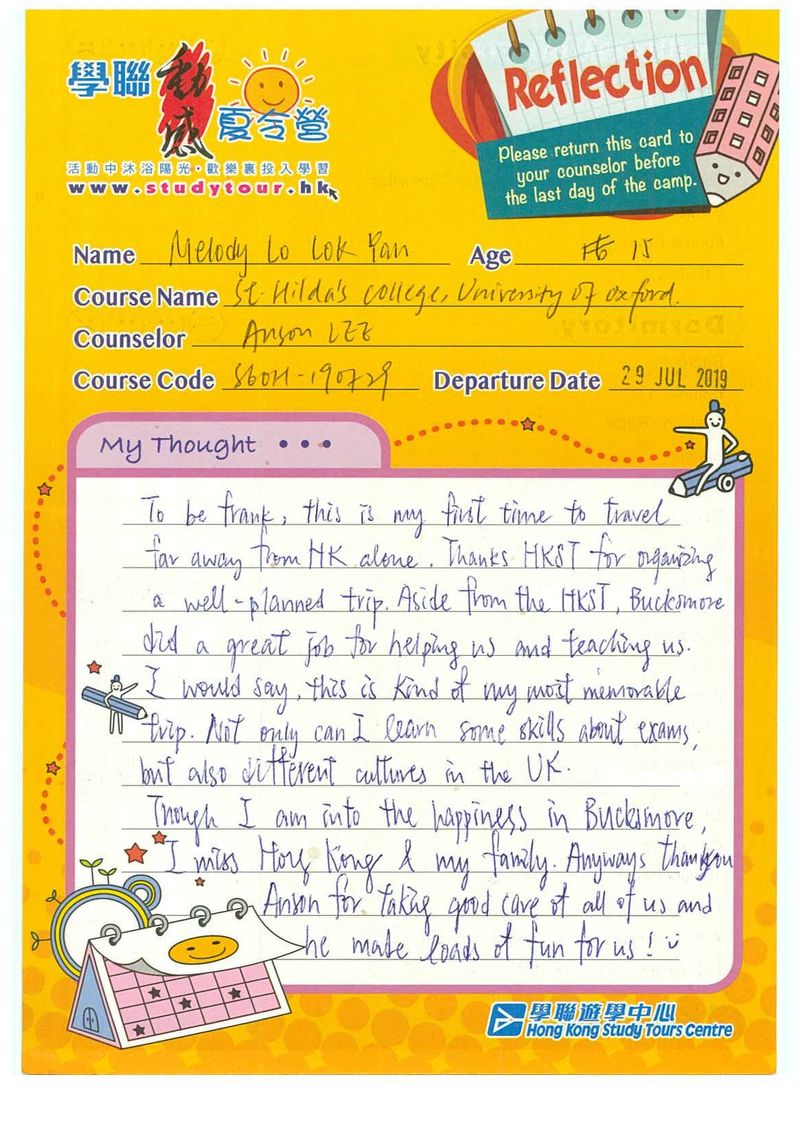 學聯 動感 夏令營
活動中沐浴陽光·歡樂裏投入學習
www.studytour.hk
Reflection
Please return this card to
your counselor before
the last day of the camp.
Name Melody Lo Lok Yan Age 15
Course Name St. Hilda's College, University of Oxford.
Counselor Anson LEE
Course Code SBOH-190729 Departure Date 29 JUL 2019
My Thought • • •
To be frank, this is my first time to travel
far away from HK alone. Thanks HKST for organizing
a well-planned trip. Aside from the HKST, Bucksmore
did a great job for helping us and teaching us.
I would say, this is kind of my most memorable
trip. Not only can I learn some skills about exams,
but also different cultures in the UK.
Though I am into the happiness in Bucksmore,
I miss Hong Kong & my family. Anyways thankyou
Anson for taking good care of all of us and
he made loads of fun for us!
學聯遊學中心
Hong Kong Study Tours Centre